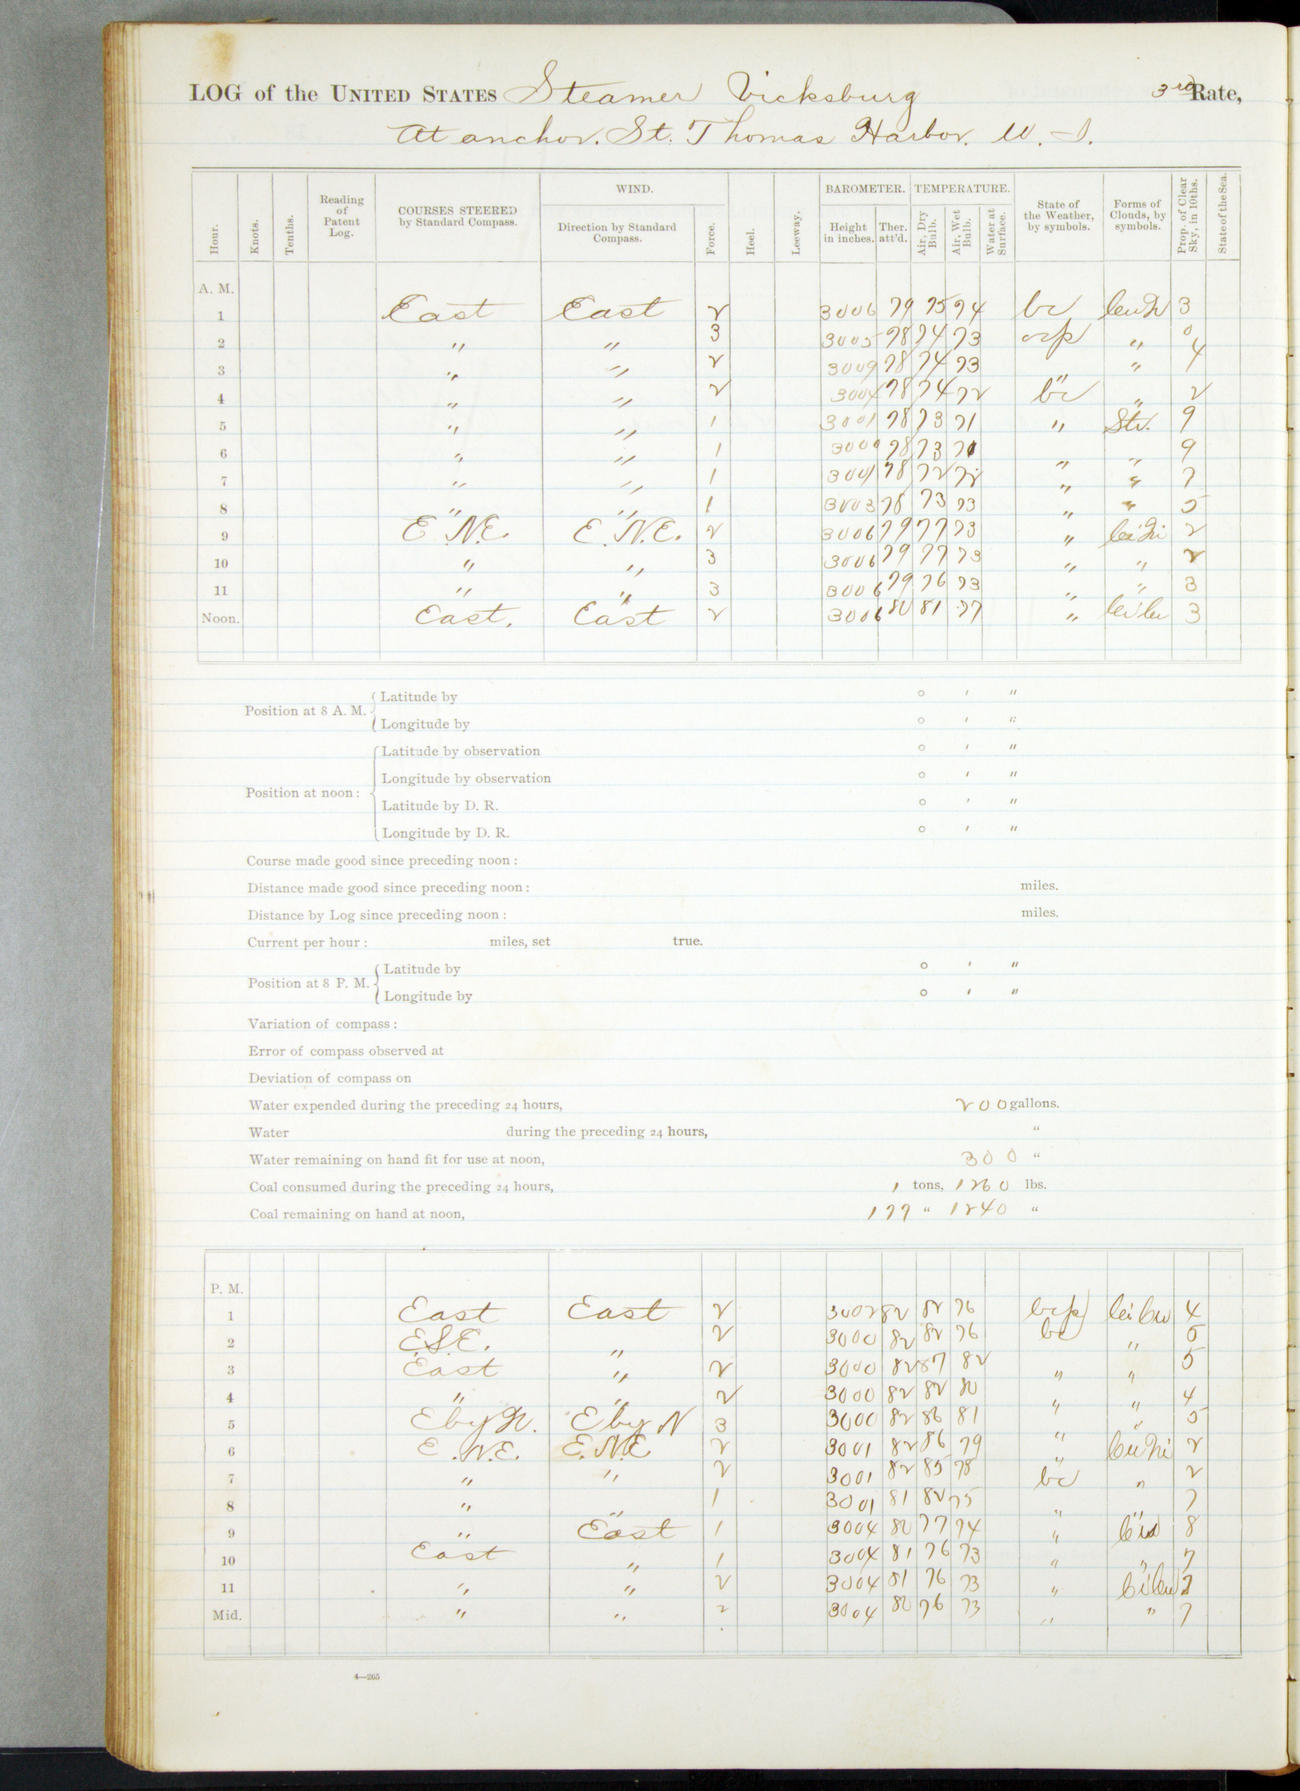 LOG of the UNITED STATES Steamer Vicksburg 3rd Rate,
At anchor. St. Thomas Harbor. W. I.
WIND. BAROMETER. TEMPERATURE.
Hour. Knots. Tenths. Reading of Patent Log. COURSES STEERED by Standard Compass. Direction by Standard Compass. Force. Heel. Leeway. Height in inches. Ther. att'd. Air, Dry Bulb. Air, Wet Bulb. Water at Surface. State of the Weather, by symbols. Forms of Clouds, by symbols. Prop. of Clear Sky, in 10ths. State of the Sea.
A. M.
1 East East 2 3006 79 75 74 bc 3
2 " " 3 3005 78 74 73 ocp " 0
3 " " 2 3009 78 74 73 " " 4
4 " " 2 3004 78 74 72 bc " 2
5 " " 1 3001 78 73 71 " Str. 9
6 " " 1 3000 78 73 71 " " 9
7 " " 1 3001 78 72 72 " " 7
8 " " 1 3003 78 73 73 " " 5
9 E.N.E. E.N.E. 2 3006 79 77 73 " 2
10 " " 3 3006 79 77 73 " " 2
11 " " 3 3006 79 76 73 " " 3
Noon. East. East 2 3006 80 81 77 " Ci Cu 3
Position at 8 A. M. { Latitude by ° ' "
Longitude by ° ' "
Position at noon: { Latitude by observation ° ' "
Longitude by observation ° ' "
Latitude by D. R. ° ' "
Longitude by D. R. ° ' "
Course made good since preceding noon:
Distance made good since preceding noon: miles.
Distance by Log since preceding noon: miles.
Current per hour: miles, set true.
Position at 8 P. M. { Latitude by ° ' "
Longitude by ° ' "
Variation of compass:
Error of compass observed at
Deviation of compass on
Water expended during the preceding 24 hours, 200 gallons.
Water during the preceding 24 hours, "
Water remaining on hand fit for use at noon, 300 "
Coal consumed during the preceding 24 hours, 1 tons, 1260 lbs.
Coal remaining on hand at noon, 177 " 1240 "
P. M.
1 East East 2 3002 82 82 76 bcp Ci Cu 4
2 E.S.E. " 2 3000 82 82 76 bc " 5
3 East " 2 3000 82 87 82 " " 5
4 " " 2 3000 82 82 80 " " 4
5 E by N. E by N 3 3000 82 86 81 " " 5
6 E.N.E. E.N.E 2 3001 82 86 79 " 2
7 " " 2 3001 82 85 78 bc " 2
8 " " 1 3001 81 82 75 " " 7
9 " East 1 3004 80 77 74 " 8
10 East " 1 3004 81 76 73 " " 7
11 " " 2 3004 81 76 73 " Ci Cu 7
Mid. " " 2 3004 80 76 73 " " 7
4—265